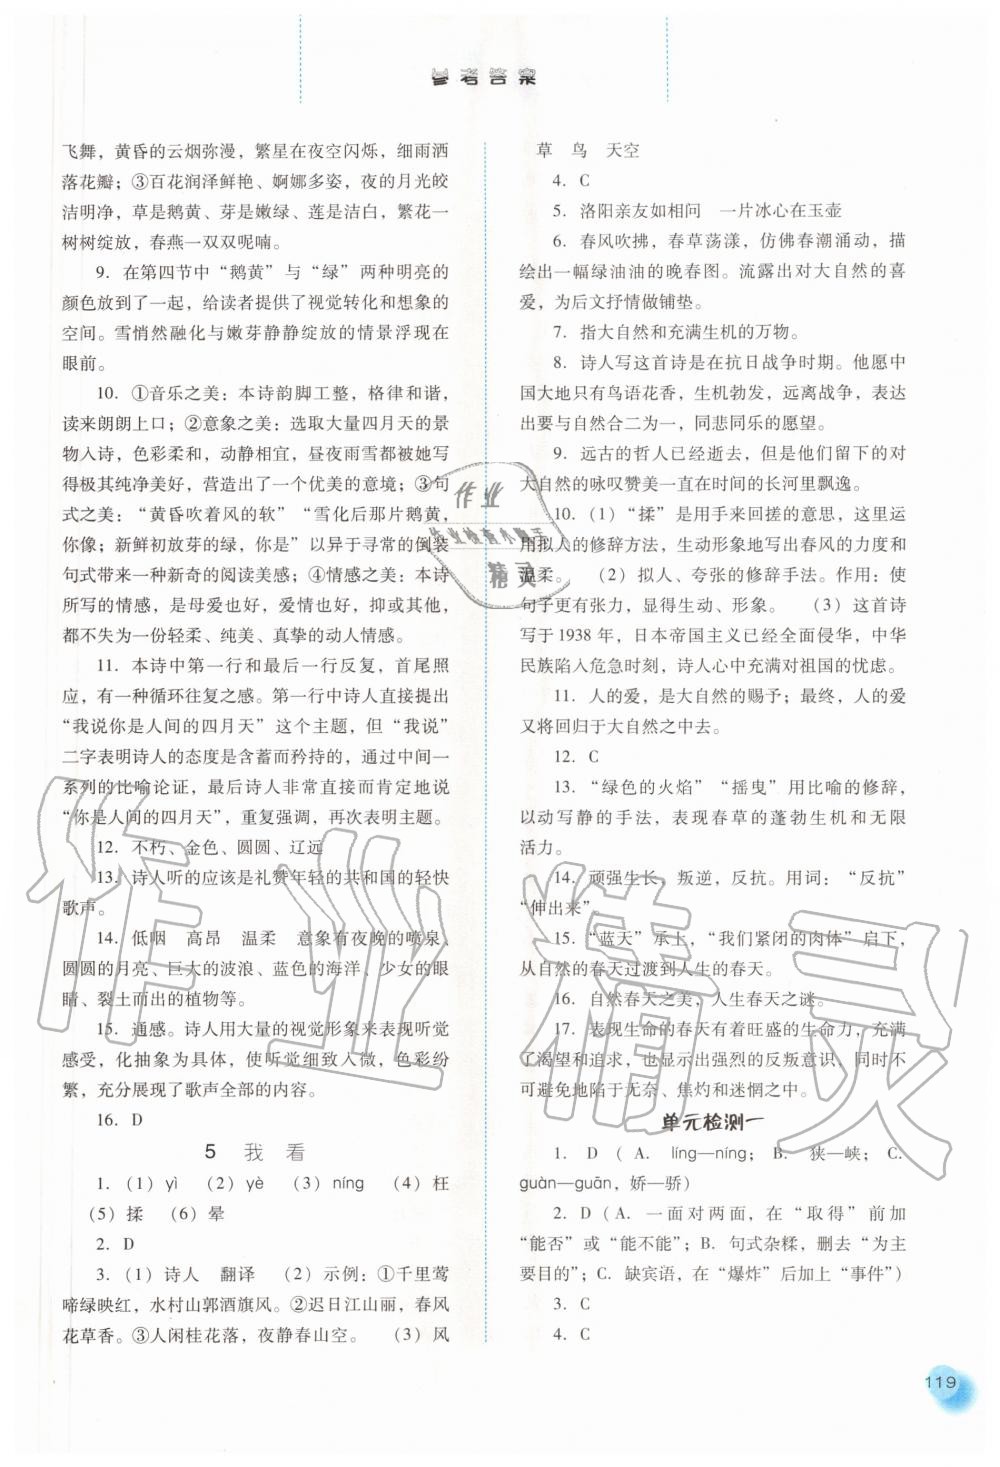 参考答案
飞舞，黄昏的云烟弥漫，繁星在夜空闪烁，细雨洒
落花瓣；③百花润泽鲜艳、婀娜多姿，夜的月光皎
洁明净，草是鹅黄、芽是嫩绿、莲是洁白，繁花一
树树绽放，春燕一双双呢喃。
9. 在第四节中“鹅黄”与“绿”两种明亮的
颜色放到了一起，给读者提供了视觉转化和想象的
空间。雪悄然融化与嫩芽静静绽放的情景浮现在
眼前。
10. ①音乐之美：本诗韵脚工整，格律和谐，
读来朗朗上口；②意象之美：选取大量四月天的景
物入诗，色彩柔和，动静相宜，昼夜雨雪都被描写
得极其纯净美好，营造出了一个优美的意境；③句
式之美：“黄昏吹着风的软”“雪化后那片鹅黄，
你像；新鲜初放芽的绿，你是”以异于寻常的倒装
句式带来一种新奇的阅读美感；④情感之美：本诗
所写的情感，是母爱也好，爱情也好，抑或其他，
都不失为一份轻柔、纯美、真挚的动人情感。
11. 本诗中第一行和最后一行反复，首尾照
应，有一种循环往复之感。第一行中诗人直接提出
“我说你是人间的四月天”这个主题，但“我说”
二字表明诗人的态度是含蓄而矜持的，通过中间一
系列的比喻论证，最后诗人非常直接而肯定地说
“你是人间的四月天”，重复强调，再次表明主题。
12. 不朽、金色、圆圆、辽远
13. 诗人听的应该是礼赞年轻的共和国的轻快
歌声。
14. 低咽　高昂　温柔　意象有夜晚的喷泉、
圆圆的月亮、巨大的波浪、蓝色的海洋、少女的眼
睛、裂土而出的植物等。
15. 通感。诗人用大量的视觉形象来表现听觉
感受，化抽象为具体，使听觉细致入微，色彩纷
繁，充分展现了歌声全部的内容。
16. D
5 我 看
1. （1）yì　（2）yè　（3）níng　（4）枉
（5）揉　（6）晕
2. D
3. （1）诗人　翻译　（2）示例：①千里莺
啼绿映红，水村山郭酒旗风。②迟日江山丽，春风
花草香。③人闲桂花落，夜静春山空。　（3）风
草　鸟　天空
4. C
5. 洛阳亲友如相问　一片冰心在玉壶
6. 春风吹拂，春草荡漾，仿佛春潮涌动，描
绘出一幅绿油油的晚春图。流露出对大自然的喜
爱，为后文抒情做铺垫。
7. 指大自然和充满生机的万物。
8. 诗人写这首诗是在抗日战争时期。他愿中
国大地只有鸟语花香，生机勃发，远离战争，表达
出要与自然合二为一，同悲同乐的愿望。
9. 远古的哲人已经逝去，但是他们留下的对
大自然的咏叹赞美一直在时间的长河里飘逸。
10. （1）“揉”是用手来回搓的意思，这里运
用拟人的修辞方法，生动形象地写出春风的力度和
温柔。　（2）拟人、夸张的修辞手法。作用：使
句子更有张力，显得生动、形象。　（3）这首诗
写于 1938 年，日本帝国主义已经全面侵华，中华
民族陷入危急时刻，诗人心中充满对祖国的忧虑。
11. 人的爱，是大自然的赐予；最终，人的爱
又将回归于大自然之中去。
12. C
13. “绿色的火焰”“摇曳”用比喻的修辞，
以动写静的手法，表现春草的蓬勃生机和无限
活力。
14. 顽强生长，叛逆，反抗。用词：“反抗”
“伸出来”
15. “蓝天”承上，“我们紧闭的肉体”启下，
从自然的春天过渡到人生的春天。
16. 自然春天之美，人生春天之谜。
17. 表现生命的春天有着旺盛的生命力，充满
了渴望和追求，也显示出强烈的反叛意识，同时不
可避免地陷于无奈、焦灼和迷惘之中。
单元检测一
1. D（A. líng—níng；B. 狭—峡；C.
guàn—guān，娇—骄）
2. D（A. 一面对两面，在“取得”前加
“能否”或“能不能”；B. 句式杂糅，删去“为主
要目的”；C. 缺宾语，在“爆炸”后加上“事件”）
3. C
4. C
119
作业
精灵
作业精灵